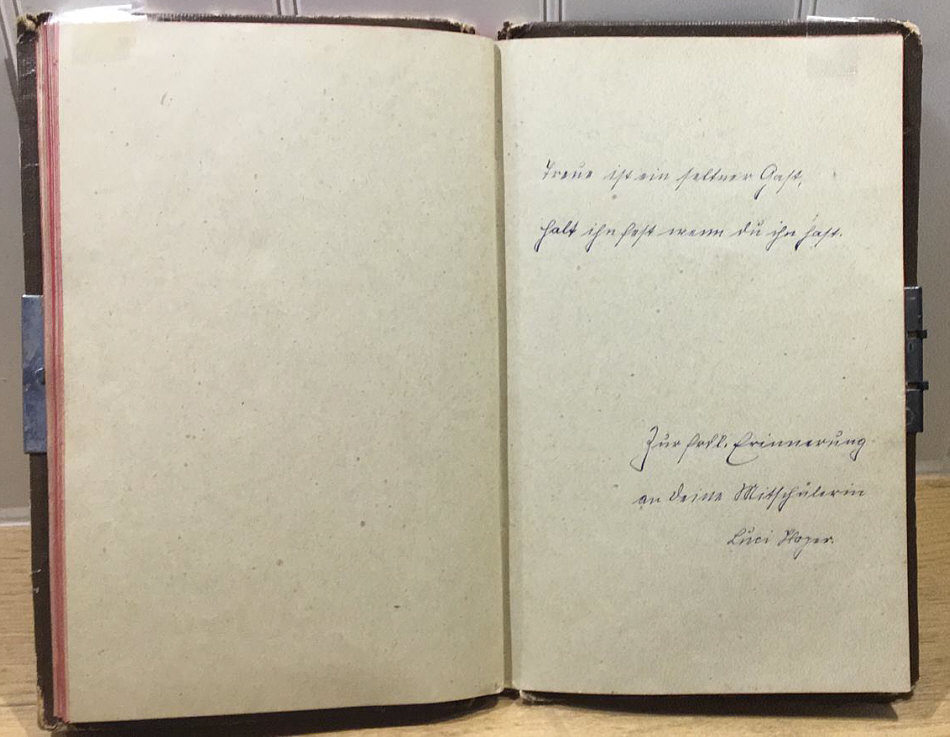 Treue ist ein seltner Gast,
halt ihn fest wenn du ihn hast.
Zur frdl. Erinnerung
an deine Mitschülerin
Luci